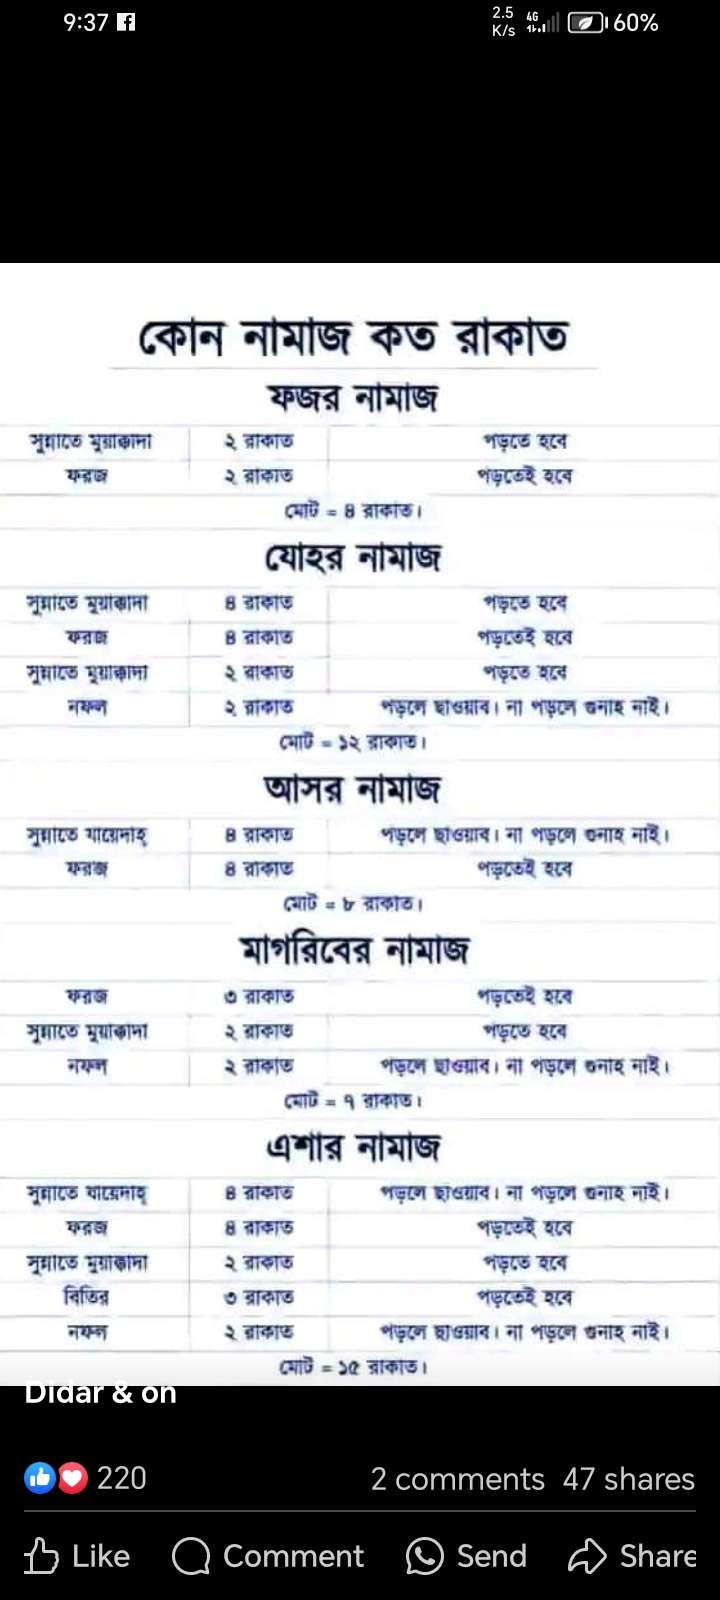 9:37
2.5 K/s 4G 60%
কোন নামাজ কত রাকাত
ফজর নামাজ
সুন্নাতে মুয়াক্কাদা ২ রাকাত পড়তে হবে
ফরজ ২ রাকাত পড়তেই হবে
মোট = ৪ রাকাত।
যোহর নামাজ
সুন্নাতে মুয়াক্কাদা ৪ রাকাত পড়তে হবে
ফরজ ৪ রাকাত পড়তেই হবে
সুন্নাতে মুয়াক্কাদা ২ রাকাত পড়তে হবে
নফল ২ রাকাত পড়লে ছাওয়াব। না পড়লে গুনাহ নাই।
মোট = ১২ রাকাত।
আসর নামাজ
সুন্নাতে যায়েদাহ্ ৪ রাকাত পড়লে ছাওয়াব। না পড়লে গুনাহ নাই।
ফরজ ৪ রাকাত পড়তেই হবে
মোট = ৮ রাকাত।
মাগরিবের নামাজ
ফরজ ৩ রাকাত পড়তেই হবে
সুন্নাতে মুয়াক্কাদা ২ রাকাত পড়তে হবে
নফল ২ রাকাত পড়লে ছাওয়াব। না পড়লে গুনাহ নাই।
মোট = ৭ রাকাত।
এশার নামাজ
সুন্নাতে যায়েদাহ্ ৪ রাকাত পড়লে ছাওয়াব। না পড়লে গুনাহ নাই।
ফরজ ৪ রাকাত পড়তেই হবে
সুন্নাতে মুয়াক্কাদা ২ রাকাত পড়তে হবে
বিতির ৩ রাকাত পড়তেই হবে
নফল ২ রাকাত পড়লে ছাওয়াব। না পড়লে গুনাহ নাই।
মোট = ১৫ রাকাত।
Didar & on
220 2 comments 47 shares
Like Comment Send Share